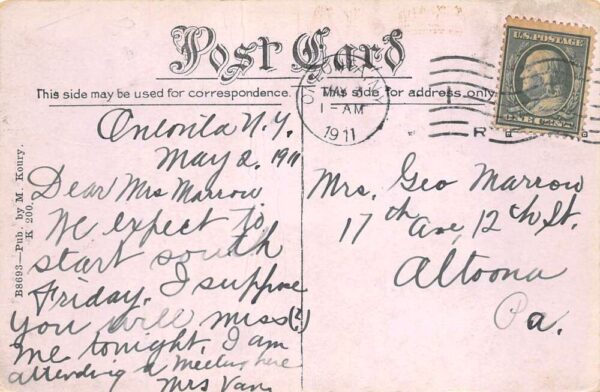 Post Card
This side may be used for correspondence.
This side for address only
U.S. POSTAGE
ONE CENT
MAY
1-AM
1911
R
B8693—Pub. by M. Koury.
K 200.
Oneonta N.Y.
May 2. 1911
Dear Mrs Marrow
We expect to
start south
Friday. I suppose
you will miss(?)
me tonight. I am
attending a Meeting here
Mrs Vann
Mrs. Geo Marrow
17th Ave, 12th St.
Altoona
Pa.